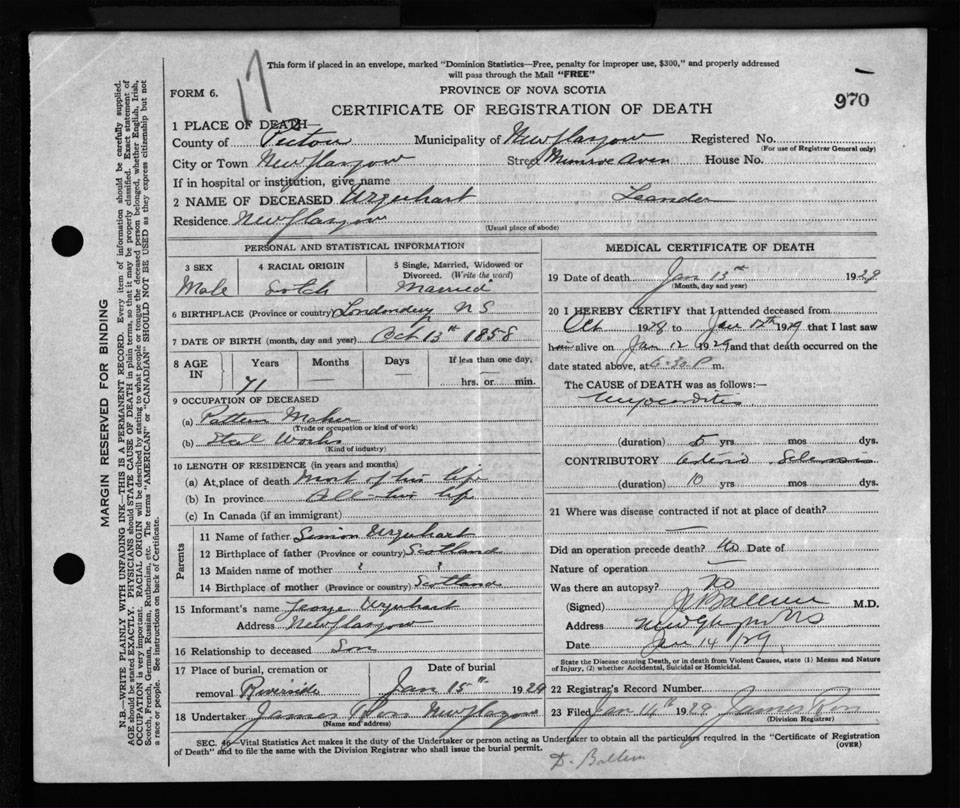 17
This form if placed in an envelope, marked "Dominion Statistics—Free, penalty for improper use, $300," and properly addressed
will pass through the Mail "FREE"
FORM 6.
PROVINCE OF NOVA SCOTIA
970
CERTIFICATE OF REGISTRATION OF DEATH
1 PLACE OF DEATH—
County of Pictou Municipality of New Glasgow Registered No.
(For use of Registrar General only)
City or Town New Glasgow Street Munroe Aven House No.
If in hospital or institution, give name
2 NAME OF DECEASED Urquhart Leander
Residence New Glasgow
(Usual place of abode)
PERSONAL AND STATISTICAL INFORMATION
3 SEX 4 RACIAL ORIGIN 5 Single, Married, Widowed or
Divorced. (Write the word)
Male Scotch Married
6 BIRTHPLACE (Province or country) Londonderry N S
7 DATE OF BIRTH (month, day and year) Oct 13th 1858
8 AGE IN Years Months Days If less than one day,
71 — — hrs. or min.
9 OCCUPATION OF DECEASED
(a) Pattern Maker
(Trade or occupation or kind of work)
(b) Steel Works
(Kind of industry)
10 LENGTH OF RESIDENCE (in years and months)
(a) At place of death Most of his life
(b) In province All his life
(c) In Canada (if an immigrant)
Parents
11 Name of father Simon Urquhart
12 Birthplace of father (Province or country) Scotland
13 Maiden name of mother ? ?
14 Birthplace of mother (Province or country) Scotland
15 Informant's name George Urquhart
Address New Glasgow
16 Relationship to deceased Son
17 Place of burial, cremation or Date of burial
removal Riverside Jan 15th 1929
18 Undertaker James New Glasgow
(Name and address)
MEDICAL CERTIFICATE OF DEATH
19 Date of death Jan 13th 1929
(Month, day and year)
20 I HEREBY CERTIFY that I attended deceased from
Oct 1928 to Jan 12th 1929 that I last saw
him alive on Jan 12 1929 and that death occurred on
the date stated above, at 6-30 P m.
The CAUSE of DEATH was as follows:—
Myocarditis
(duration) 5 yrs mos dys.
CONTRIBUTORY Arterio Sclerosis
(duration) 10 yrs mos dys.
21 Where was disease contracted if not at place of death?
—
Did an operation precede death? No Date of
Nature of operation
Was there an autopsy? No
(Signed) M.D.
Address New Glasgow NS
Date Jan 14 /29
State the Disease causing Death, or in death from Violent Causes, state (1) Means and Nature
of Injury, (2) whether Accidental, Suicidal or Homicidal.
22 Registrar's Record Number
23 Filed Jan 14th 1929 James
(Division Registrar)
SEC. 46—Vital Statistics Act makes it the duty of the Undertaker or person acting as Undertaker to obtain all the particulars required in the "Certificate of Registration
of Death" and to file the same with the Division Registrar who shall issue the burial permit.
(OVER)
MARGIN RESERVED FOR BINDING
N.B.—WRITE PLAINLY WITH UNFADING INK—THIS IS A PERMANENT RECORD. Every item of information should be carefully supplied.
AGE should be stated EXACTLY. PHYSICIANS should STATE CAUSE OF DEATH in plain terms, so that it may be properly classified. Exact statement of
OCCUPATION is very important. RACIAL ORIGIN will be described by stating to what people or tongue the deceased person belonged, whether English, Irish,
Scotch, French, German, Russian, Ruthenian, etc. The terms "AMERICAN" or "CANADIAN" SHOULD NOT BE USED as they express citizenship but not
a race or people. See instructions on back of Certificate.